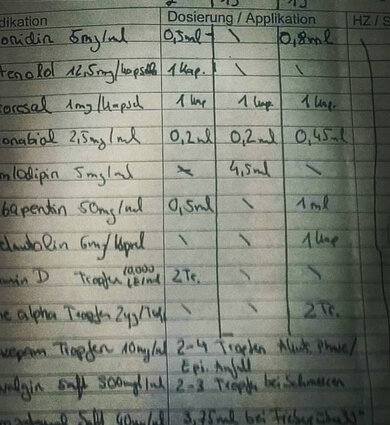 dikation Dosierung / Applikation HZ / S
onidin 5mg/ml 0,3ml \ 0,8ml
tenolol 12,5mg/Kapsel 1 Kap. \ \
ioresal 1mg/Kapsel 1 Kap 1 Kap 1 Kap.
onabiol 2,5mg/ml 0,2ml 0,2ml 0,45ml
mlodipin 5mg/ml 4,5ml \
abapentin 50mg/ml 0,5ml \ 1ml
6mg/Kapsel \ \ 1 Kap
amin D Tropfen 2 Tr. \ \
e alpha Tropfen 2µg/ \ \ 2 Tr.
azepam Tropfen 10mg/ml 2-4 Tropfen Akut Phase/
Epi. Anfall
valgin Saft 500mg/ml 2-3 Tropfen bei Schmerzen
Saft 40mg/ml 3,75ml bei